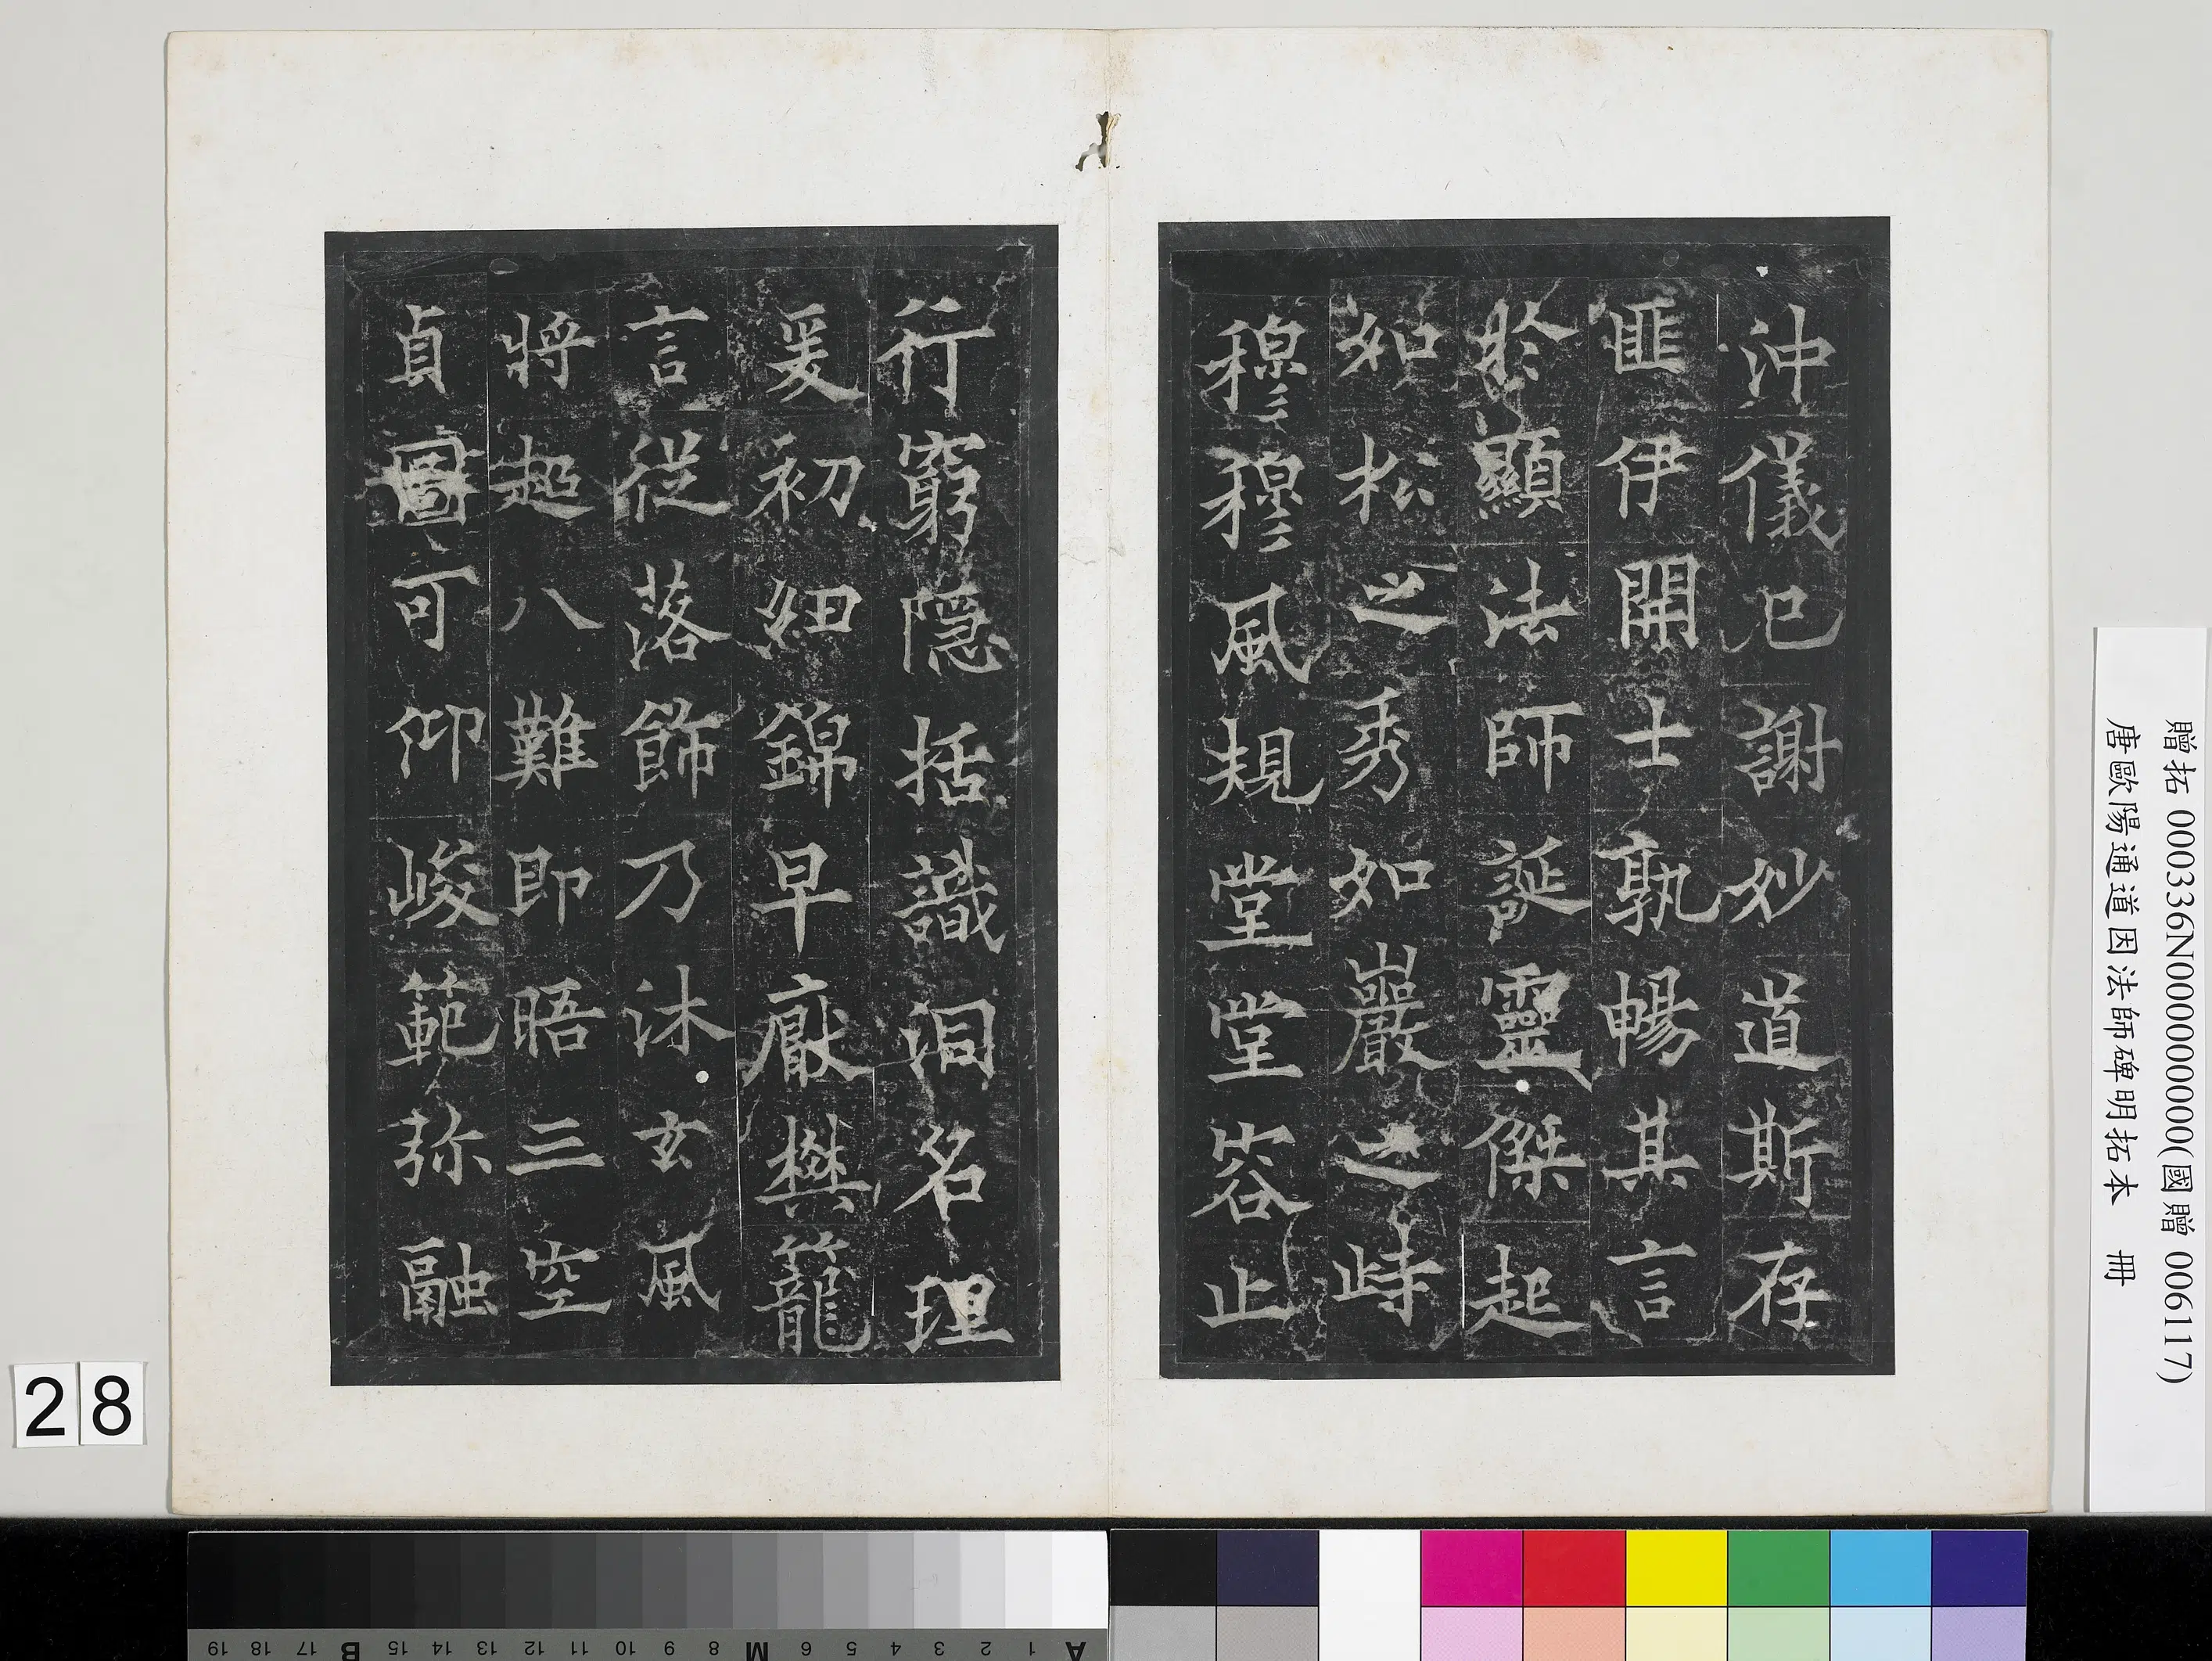 沖儀已謝妙道斯存
匪伊開士孰暢其言
於顯法師誕靈傑起
如松之秀如巖之峙
穆穆風規堂堂容止
行窮隱括識洞名理
爰初 錦早厭樊籠
言從落飾乃沐玄風
將超八難即晤三空
貞圖可仰峻範弥融
贈拓 000336N000000000(國贈 006117)
唐歐陽通道因法師碑明拓本 冊
28
A 1 2 3 4 5 6 M 8 9 10 11 12 13 14 15 B 17 18 19